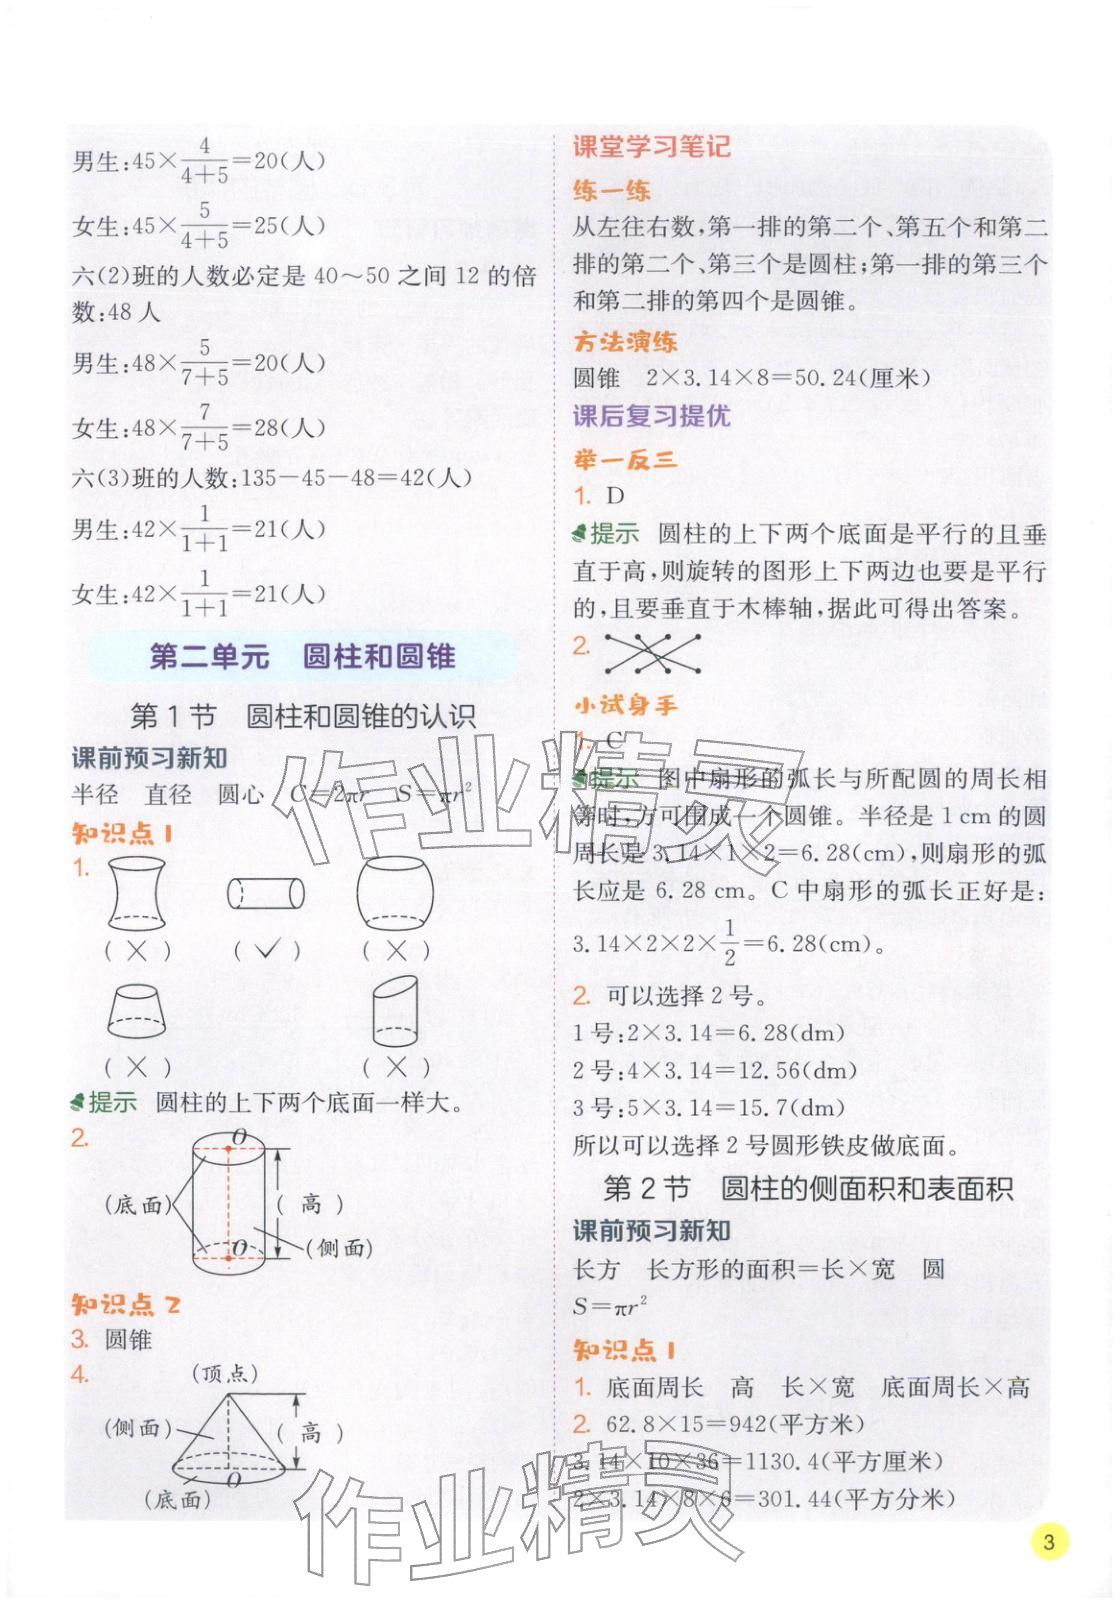 男生:45×4/4+5=20(人)
女生:45×5/4+5=25(人)
六(2)班的人数必定是 40～50 之间 12 的倍
数:48 人
男生:48×5/7+5=20(人)
女生:48×7/7+5=28(人)
六(3)班的人数:135-45-48=42(人)
男生:42×1/1+1=21(人)
女生:42×1/1+1=21(人)
第二单元 圆柱和圆锥
第 1 节 圆柱和圆锥的认识
课前预习新知
半径 直径 圆心 C=2πr S=πr²
知识点 1
1.
(×) (✓) (×)
(×) (×)
提示 圆柱的上下两个底面一样大。
2.
O
(底面) (高)
O (侧面)
知识点 2
3. 圆锥
4. (顶点)
(侧面) (高)
O
(底面)
课堂学习笔记
练一练
从左往右数,第一排的第二个、第五个和第二
排的第二个、第三个是圆柱;第一排的第三个
和第二排的第四个是圆锥。
方法演练
圆锥 2×3.14×8=50.24(厘米)
课后复习提优
举一反三
1. D
提示 圆柱的上下两个底面是平行的且垂
直于高,则旋转的图形上下两边也要是平行
的,且要垂直于木棒轴,据此可得出答案。
2.
小试身手
1. C
提示 图中扇形的弧长与所配圆的周长相
等时,方可围成一个圆锥。半径是 1 cm 的圆
周长是 3.14×1×2=6.28(cm),则扇形的弧
长应是 6.28 cm。C 中扇形的弧长正好是:
3.14×2×2×1/2=6.28(cm)。
2. 可以选择 2 号。
1 号:2×3.14=6.28(dm)
2 号:4×3.14=12.56(dm)
3 号:5×3.14=15.7(dm)
所以可以选择 2 号圆形铁皮做底面。
第 2 节 圆柱的侧面积和表面积
课前预习新知
长方 长方形的面积=长×宽 圆
S=πr²
知识点 1
1. 底面周长 高 长×宽 底面周长×高
2. 62.8×15=942(平方米)
3.14×10×36=1130.4(平方厘米)
2×3.14×8×6=301.44(平方分米)
3
作业精灵
作业精灵